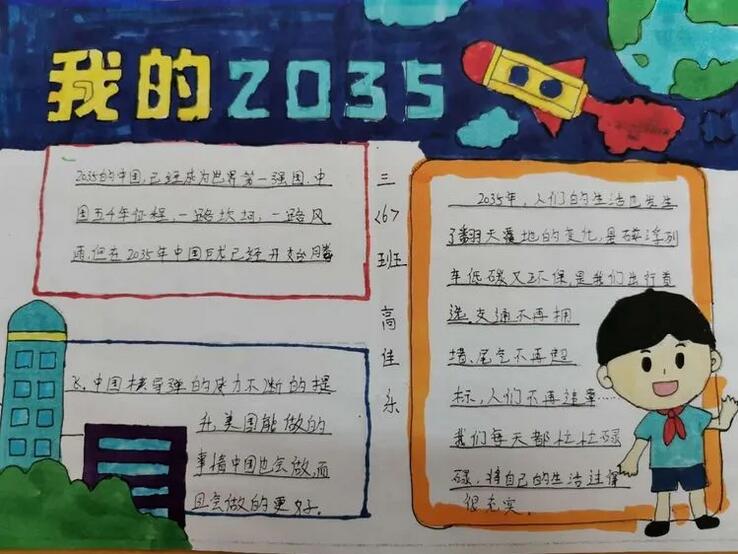 我的2035
2035的中国,已经成为世界第一强国.中
国五千年征程,一路坎坷,一路风
雨,但在2035年中国巨龙已经开始腾
飞,中国核导弹的威力不断的提
升,美国能做的
事情中国也会做,而
且会做的更好.
三
<6>
班
高
佳
乐
2035年,人们的生活也发生
了翻天覆地的变化,悬磁浮列
车低碳又环保,是我们出行首
选.交通不再拥
堵、尾气不再超
标,人们不再违章……
我们每天都忙忙碌
碌,将自己的生活过得
很充实.